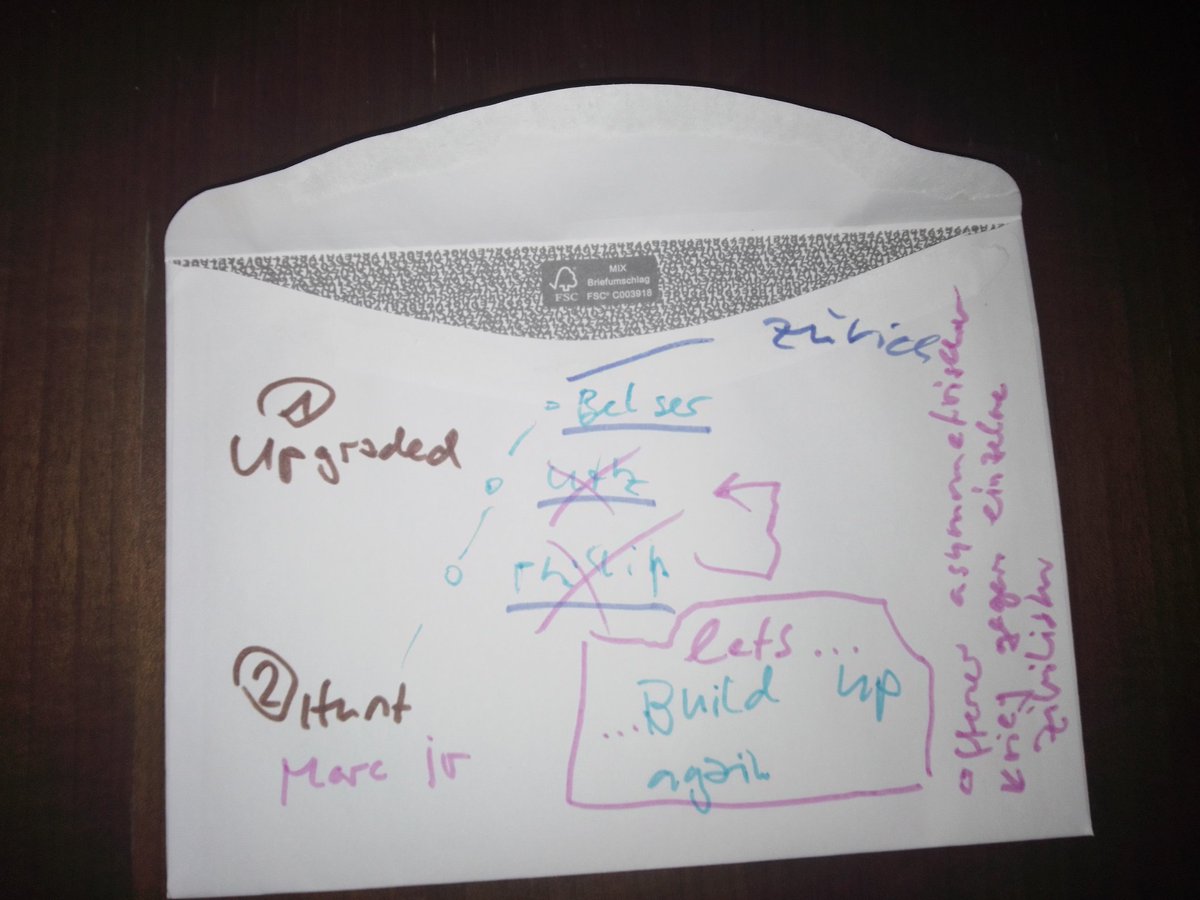 FSC
MIX
Briefumschlag
FSC® C003918
Zürich
①
Upgraded
Belser
Utz
Philip
② Hunt
Marc jr
lets...
...Build up
again
offener asymmetrischer
Krieg gegen einzelne
Zivilisten